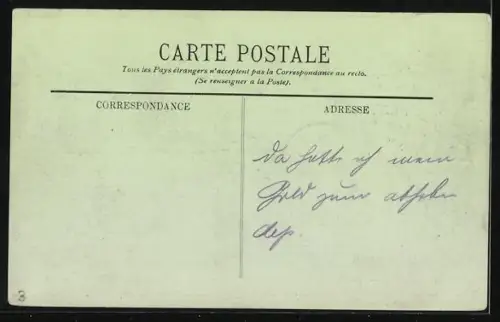 CARTE POSTALE
Tous les Pays étrangers n'acceptent pas la Correspondance au recto.
(Se renseigner à la Poste).
CORRESPONDANCE
ADRESSE
da hatte ich mein
Geld zum abheben
dep.
3